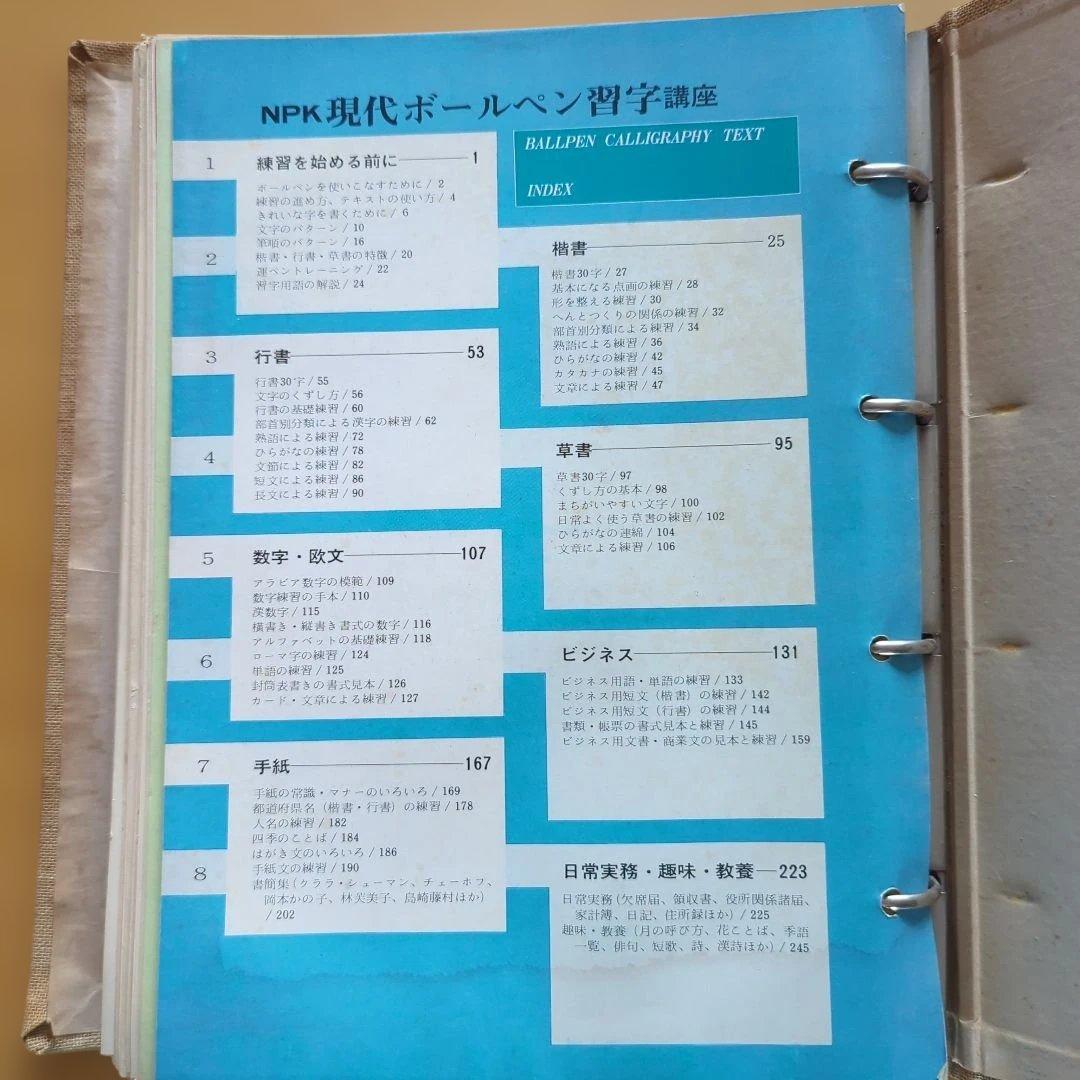 NPK 現代ボールペン習字講座
BALLPEN CALLIGRAPHY TEXT
INDEX
1 練習を始める前に 1
ボールペンを使いこなすために / 2
練習の進め方、テキストの使い方 / 4
きれいな字を書くために / 6
文字のパターン / 10
筆順のパターン / 16
楷書・行書・草書の特徴 / 20
運ペントレーニング / 22
習字用語の解説 / 24
2 楷書 25
楷書30字 / 27
基本になる点画の練習 / 28
形を整える練習 / 30
へんとつくりの関係の練習 / 32
部首別分類による練習 / 34
熟語による練習 / 36
ひらがなの練習 / 42
カタカナの練習 / 45
文章による練習 / 47
3 行書 53
行書30字 / 55
文字のくずし方 / 56
行書の基礎練習 / 60
部首別分類による漢字の練習 / 62
熟語による練習 / 72
ひらがなの練習 / 78
文節による練習 / 82
短文による練習 / 86
長文による練習 / 90
4 草書 95
草書30字 / 97
くずし方の基本 / 98
まちがいやすい文字 / 100
日常よく使う草書の練習 / 102
ひらがなの連綿 / 104
文章による練習 / 106
5 数字・欧文 107
アラビア数字の模範 / 109
数字練習の手本 / 110
漢数字 / 115
横書き・縦書き書式の数字 / 116
アルファベットの基礎練習 / 118
ローマ字の練習 / 124
単語の練習 / 125
封筒表書きの書式見本 / 126
カード・文章による練習 / 127
6 ビジネス 131
ビジネス用語・単語の練習 / 133
ビジネス用短文（楷書）の練習 / 142
ビジネス用短文（行書）の練習 / 144
書類・帳票の書式見本と練習 / 145
ビジネス用文書・商業文の見本と練習 / 159
7 手紙 167
手紙の常識・マナーのいろいろ / 169
都道府県名（楷書・行書）の練習 / 178
人名の練習 / 182
四季のことば / 184
はがき文のいろいろ / 186
手紙文の練習 / 190
書簡集（クララ・シューマン、チェーホフ、
岡本かの子、林芙美子、島崎藤村ほか）
/ 202
8 日常実務・趣味・教養 223
日常実務（欠席届、領収書、役所関係諸届、
家計簿、日記、住所録ほか）/ 225
趣味・教養（月の呼び方、花ことば、季語
一覧、俳句、短歌、詩、漢詩ほか）/ 245